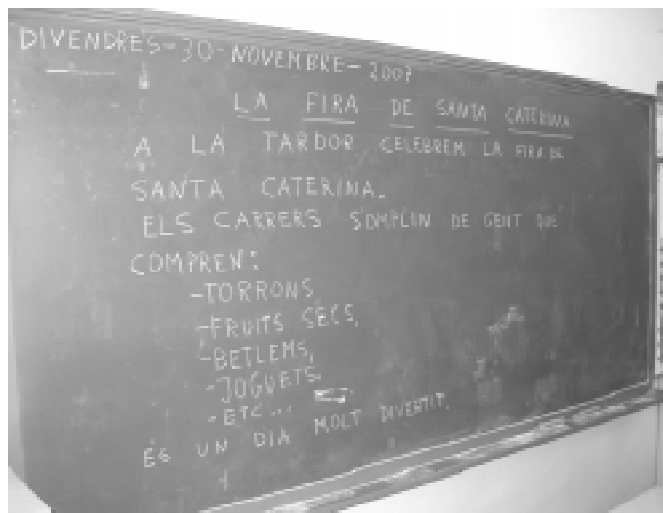 DIVENDRES-30-NOVEMBRE-2007
LA FIRA DE SANTA CATERINA
A LA TARDOR CELEBREM LA FIRA DE
SANTA CATERINA.
ELS CARRERS S'OMPLIN DE GENT QUE
COMPREN:
-TORRONS,
-FRUITS SECS,
-BETLEMS,
-JOGUETS,
-ETC...
ÉS UN DIA MOLT DIVERTIT.